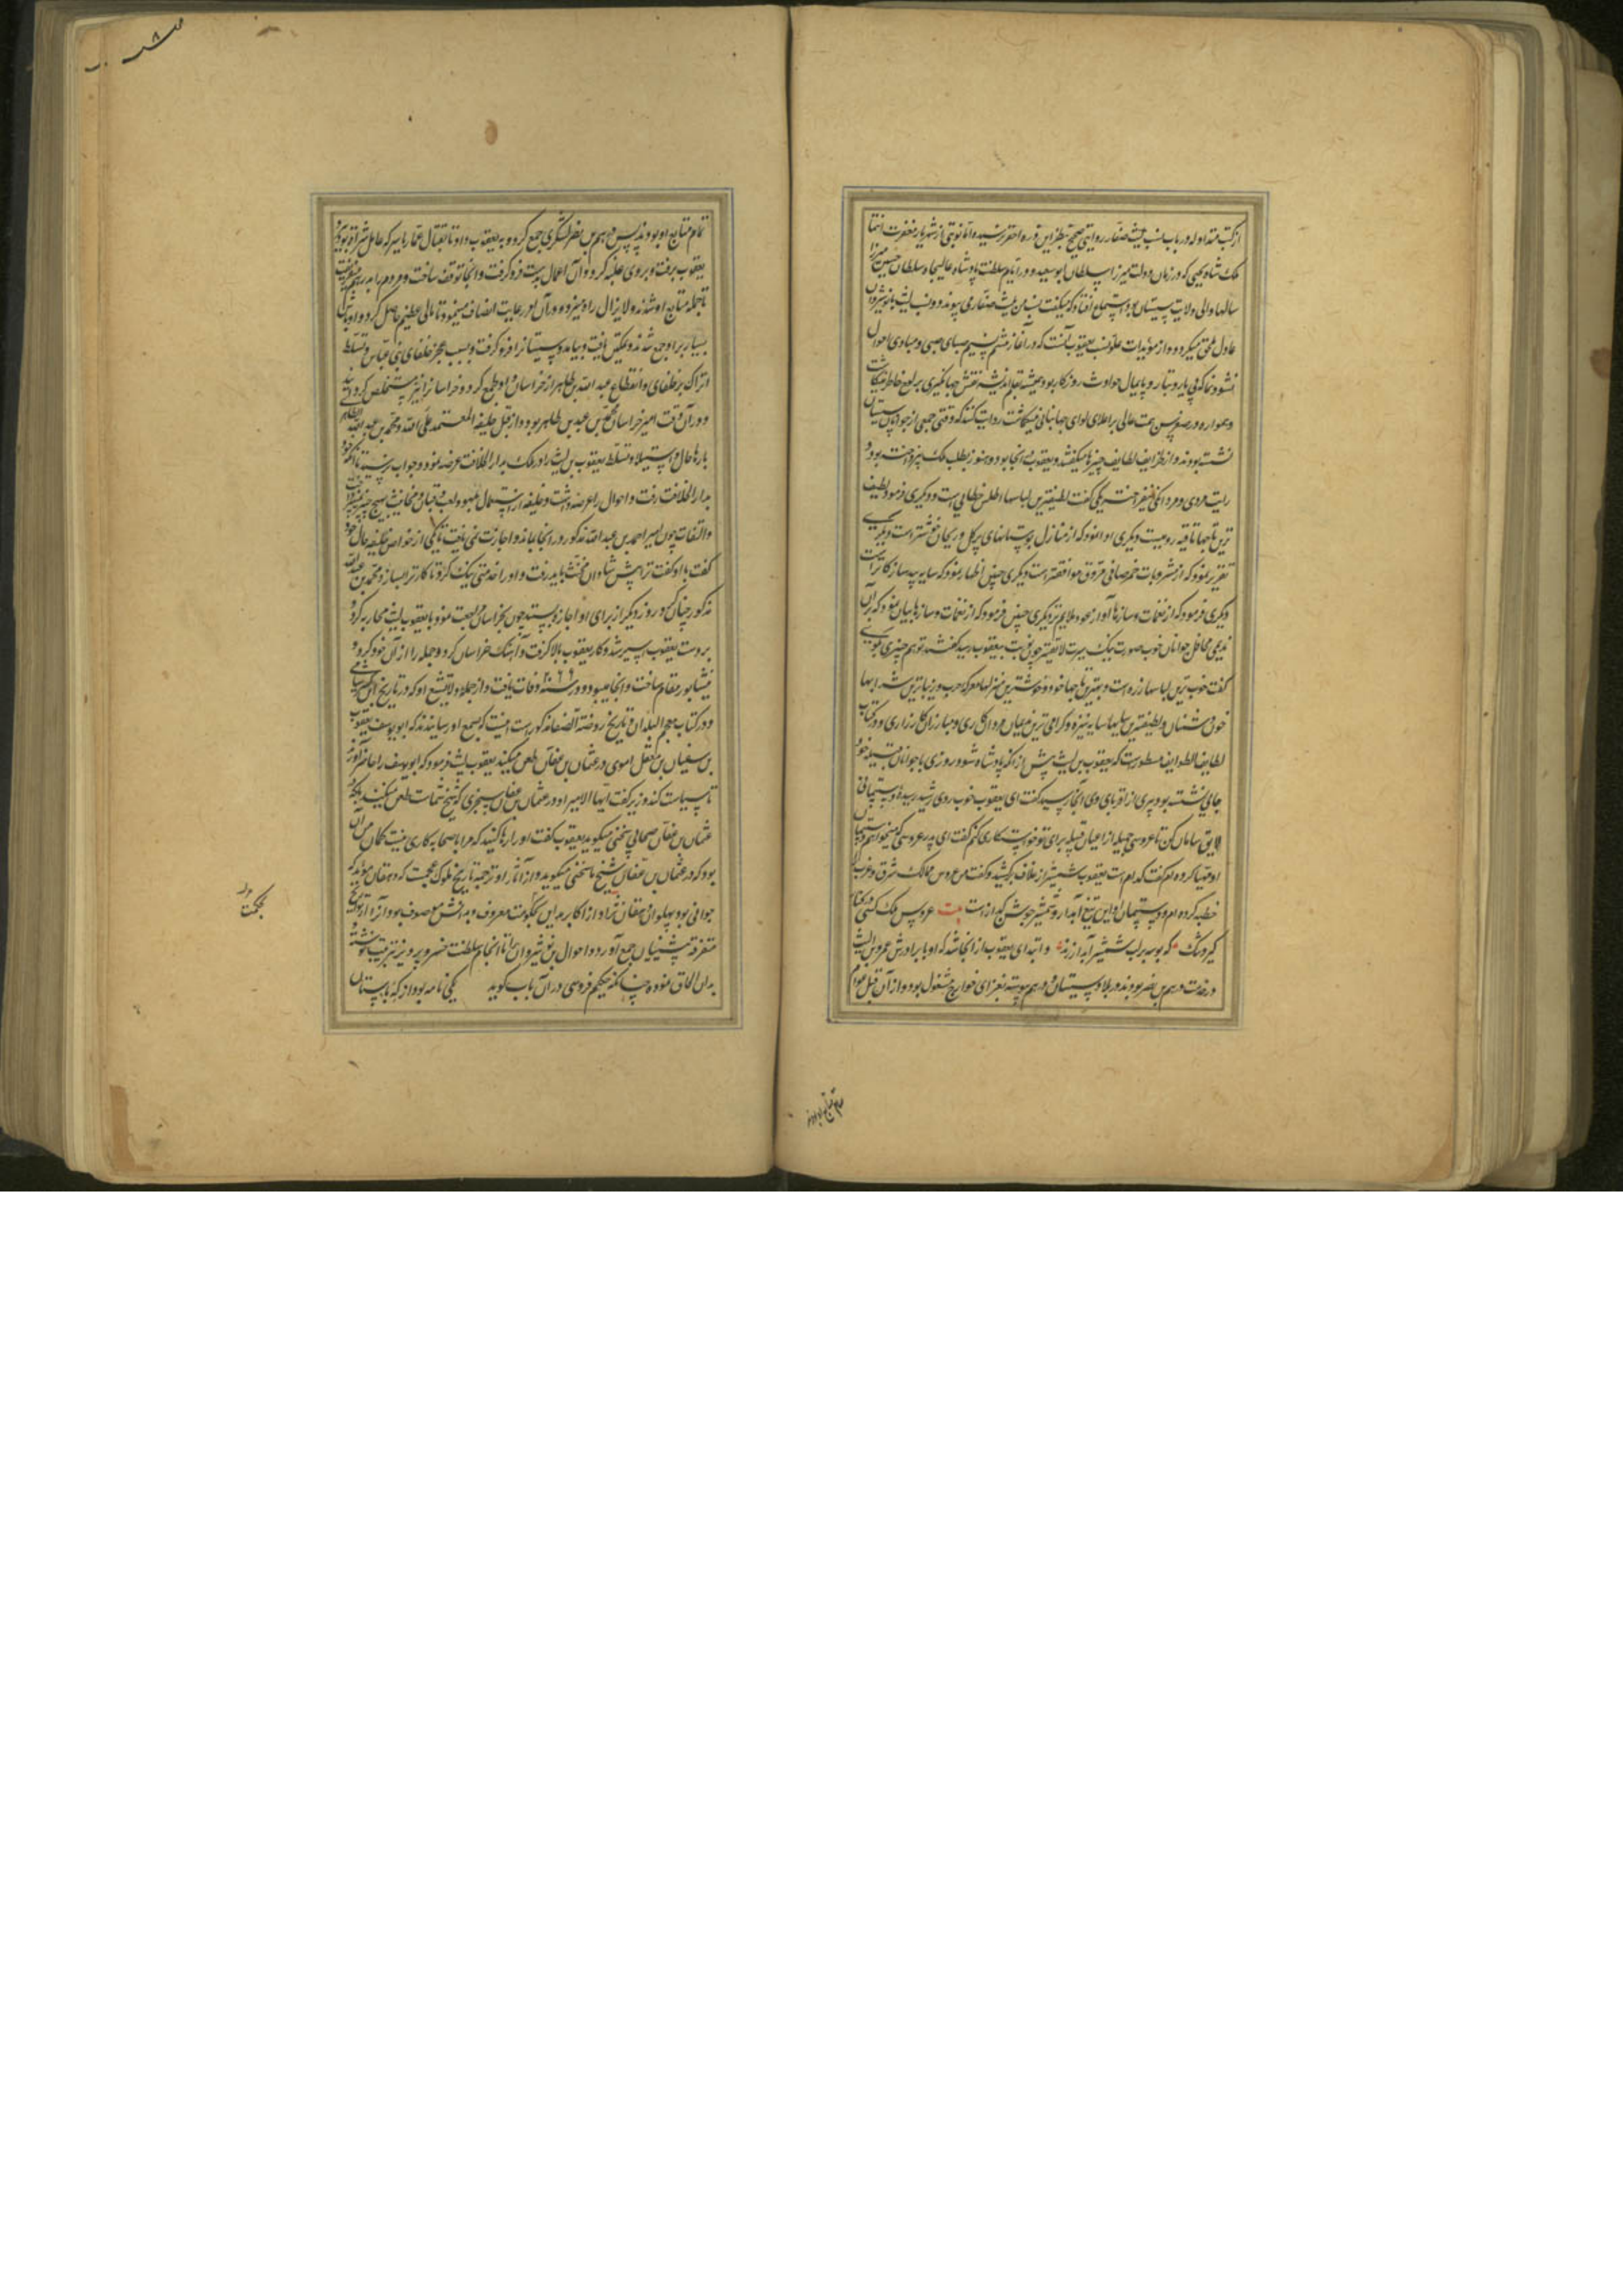 از کتب متداوله در باب نسب لیث صفار روایتی صحیح بنظر این ذره احقر نرسیده اما نوبتی از شهریار مغفرت انتما
ملک شاه یحیی که در زمان دولت میرزا سلطان ابوسعید و در ایام سلطنت پادشاه عالیجاه سلطان حسین میرزا
سالها والی ولایت سیستان بود استماع افتاد که میگفت نسب من بلیث صفار می پیوندد و نسب لیث بانوشیروان
عادل ملحق میگردد و از مویدات علو نسب یعقوب آنست که در آغاز تنسیم نسیم صبای صبی و مبادی احوال
نشو و نما که پی یار و تبار و پایمال حوادث روزکار بود همیشه بقلم اندیشه نقش جهانکیری بر لوح خاطر می نکاشت
و همواره در سر همت عالی بر اعلای لوای جهانبانی میکماشت روایت کنند که وقتی جمعی از جوانان سیستان
نشسته بودند و از ظرایف لطایف چیزها میکفتند و یعقوب در آنجا بود و هنوز بطلب ملک برنخواسته بود و
رایت مردی و مردانکی نیفراخته یکی گفت لطیفترین لباسها اطلس خطایی است و دیکری فرمود لطیف
ترین تاجها تاقیه رومیست و دیکری ادا نمود که از منازل بوستانهای پرکل و ریحان خوشتر است و دیکری
تقریر نمود که از مشروبات خمر صافی مروق موافقتر است و دیکری چنین اظهار نمود که سایه بید سازکارتر است
و دیکری فرمود که از نغمات و سازها آواز عود ملایم تر و دیکری چنین فرمود که از نغمات و سازها بیان نمود که برای
ندیمی محافل جوانان خوب صورت نیک سیرت لایقتر چون نوبت بیعقوب رسید گفتند تو هم چیزی بکوی
گفت خوب ترین لباسها زره است و بهترین تاجها خود و خوشترین منزلها معرکه حرب و زیباترین شرابها
خون دشمنان و لطیفترین سایها سایه نیزه و گرامی ترین ندیمان مردان کاری و مبارزان کارزاری و در کتاب
لطایف الطوایف مسطور است که یعقوب بن لیث پیش از آنکه پادشاه شود روزی با جوانان قبیله خود
جایی نشسته بود پیری از اقربای وی آنجا رسید گفت ای یعقوب خوب روی و رشید رسیده دستپیمانی
لایق سامان کن تا عروسی جمیله از اعیان قبیله برای تو خواستکاری کنم گفت ای پدر عروسی که میخواهم دستپیمان
او مهیا کرده ام گفت کدام است یعقوب شمشیر از غلاف برکشید و گفت من عروس ممالک شرق و غرب را
خطبه کرده ام و دستپیمان او این تیغ آبدار و شمشیر جوشن گذار است بیت عروس ملک کسی در کنار
گیرد تنک که بوسه بر لب شمشیر آبدار زند و ابتدای یعقوب از آنجا شد که او با برادرش عمرو بن لیث
در خدمت درهم بن نصر بودند در بلاد سیستان و درهم پیوسته بغزای خوارج مشغول بود و از آن قبل عوام
تمام متابع او بودند
تمام متابع او بودند پس درهم بن نصر لشکری جمع کرد و به یعقوب داد تا بقتال عمار یاسر که عامل شراة بود رود
یعقوب برفت و بر وی غلبه کرد و آن اعمال بدست فرو گرفت و آنجا توقف ساخت و مردم را بدرهم میخواند
تا جمله متابع او شدند و لایزال راه میزد و در آن امر رعایت انصاف مینمود تا مالی عظیم حاصل کرد و اوباش
بسیار بر او جمع شدند و تمکین یافت و بیامد و سیستان را فرو گرفت و بسبب عجز خلفای بنی عباس و تسلط
اتراک بر خلفای و انقطاع عبد الله بن طاهر از خراسان او طمع کرد و خراسان را نیز مستخلص کرد
و در آن وقت امیر خراسان محمد بن عبد بن طاهر بود و از قبل خلیفه المعتمد علی الله و محمد بن عبد الله طاهر
بارها حال و استیلا و تسلط یعقوب بن لیث را در ملک بدار الخلافت عرضه نمود و جواب نرسید تا آنکه خود
بدار الخلافت رفت و احوال را عرضه داشت و خلیفه از اشتمال بلهو و لعب و قیان و مخانیث بهیچ چیز نپرداخت
و التفات چون امیر احمد بن عبد الله مذکور در آنجا بماند و اجازت نمی یافت تا یکی از خواص خلیفه حال خود
گفت با او گفت ترا پیش شادان مخنث باید رفت و او را خدمتی نیک کرد تا کار ترا بسازد محمد بن عبد الله
مذکور چنان کرد و روز دیکر از برای او اجازه بستد چون بخراسان مراجعت نمود با یعقوب لیث محاربه کرد و
بر دست یعقوب اسیر شد و کار یعقوب بالا گرفت و آهنک خراسان کرد و جمله را از آن خود کرد و
نیشابور مقام ساخت و آنجا میبود و در سنه ۲۶۹ وفات یافت و از جمله دلایل تشیع او که در تاریخ ابن کثیر شامی
و در کتاب معجم البلدان و تاریخ روضة الصفا مذکور است اینست که بسمع او رسانیدند که ابو یوسف یعقوب
بن سفیان بن معقل اموی در عثمان بن عفان طعن میکند یعقوب لیث فرمود که ابو یوسف را حاضر آورند
تا سیاست کند وزیر گفت ایها الامیر او در عثمان بن عفان سجزی که شیخ شماست طعن نمیکند بلکه در
عثمان بن عفان صحابی سخنی میکوید یعقوب گفت او را رها کنید که مرا با صحابه کاری نیست کمان من آن
بود که در عثمان بن عفان شیخ ما سخنی میکوید و از آثار او ترجمه تاریخ ملوک عجمست که دهقان موبد که
جوانی بود پهلوان دهقان نژاد از اکابر مداین بحکومت معروف و بدانش موصوف بود آنرا از تواریخ
متفرقه پیشینیان جمع آورد و احوال بن نوشیروان را تا انجام سلطنت خسرو پرویز بترتیب نوشته و
بدان الحاق نموده چنانکه حکیم فردوسی در آن باب گوید یکی نامه بود از گه باستان
بحکمت